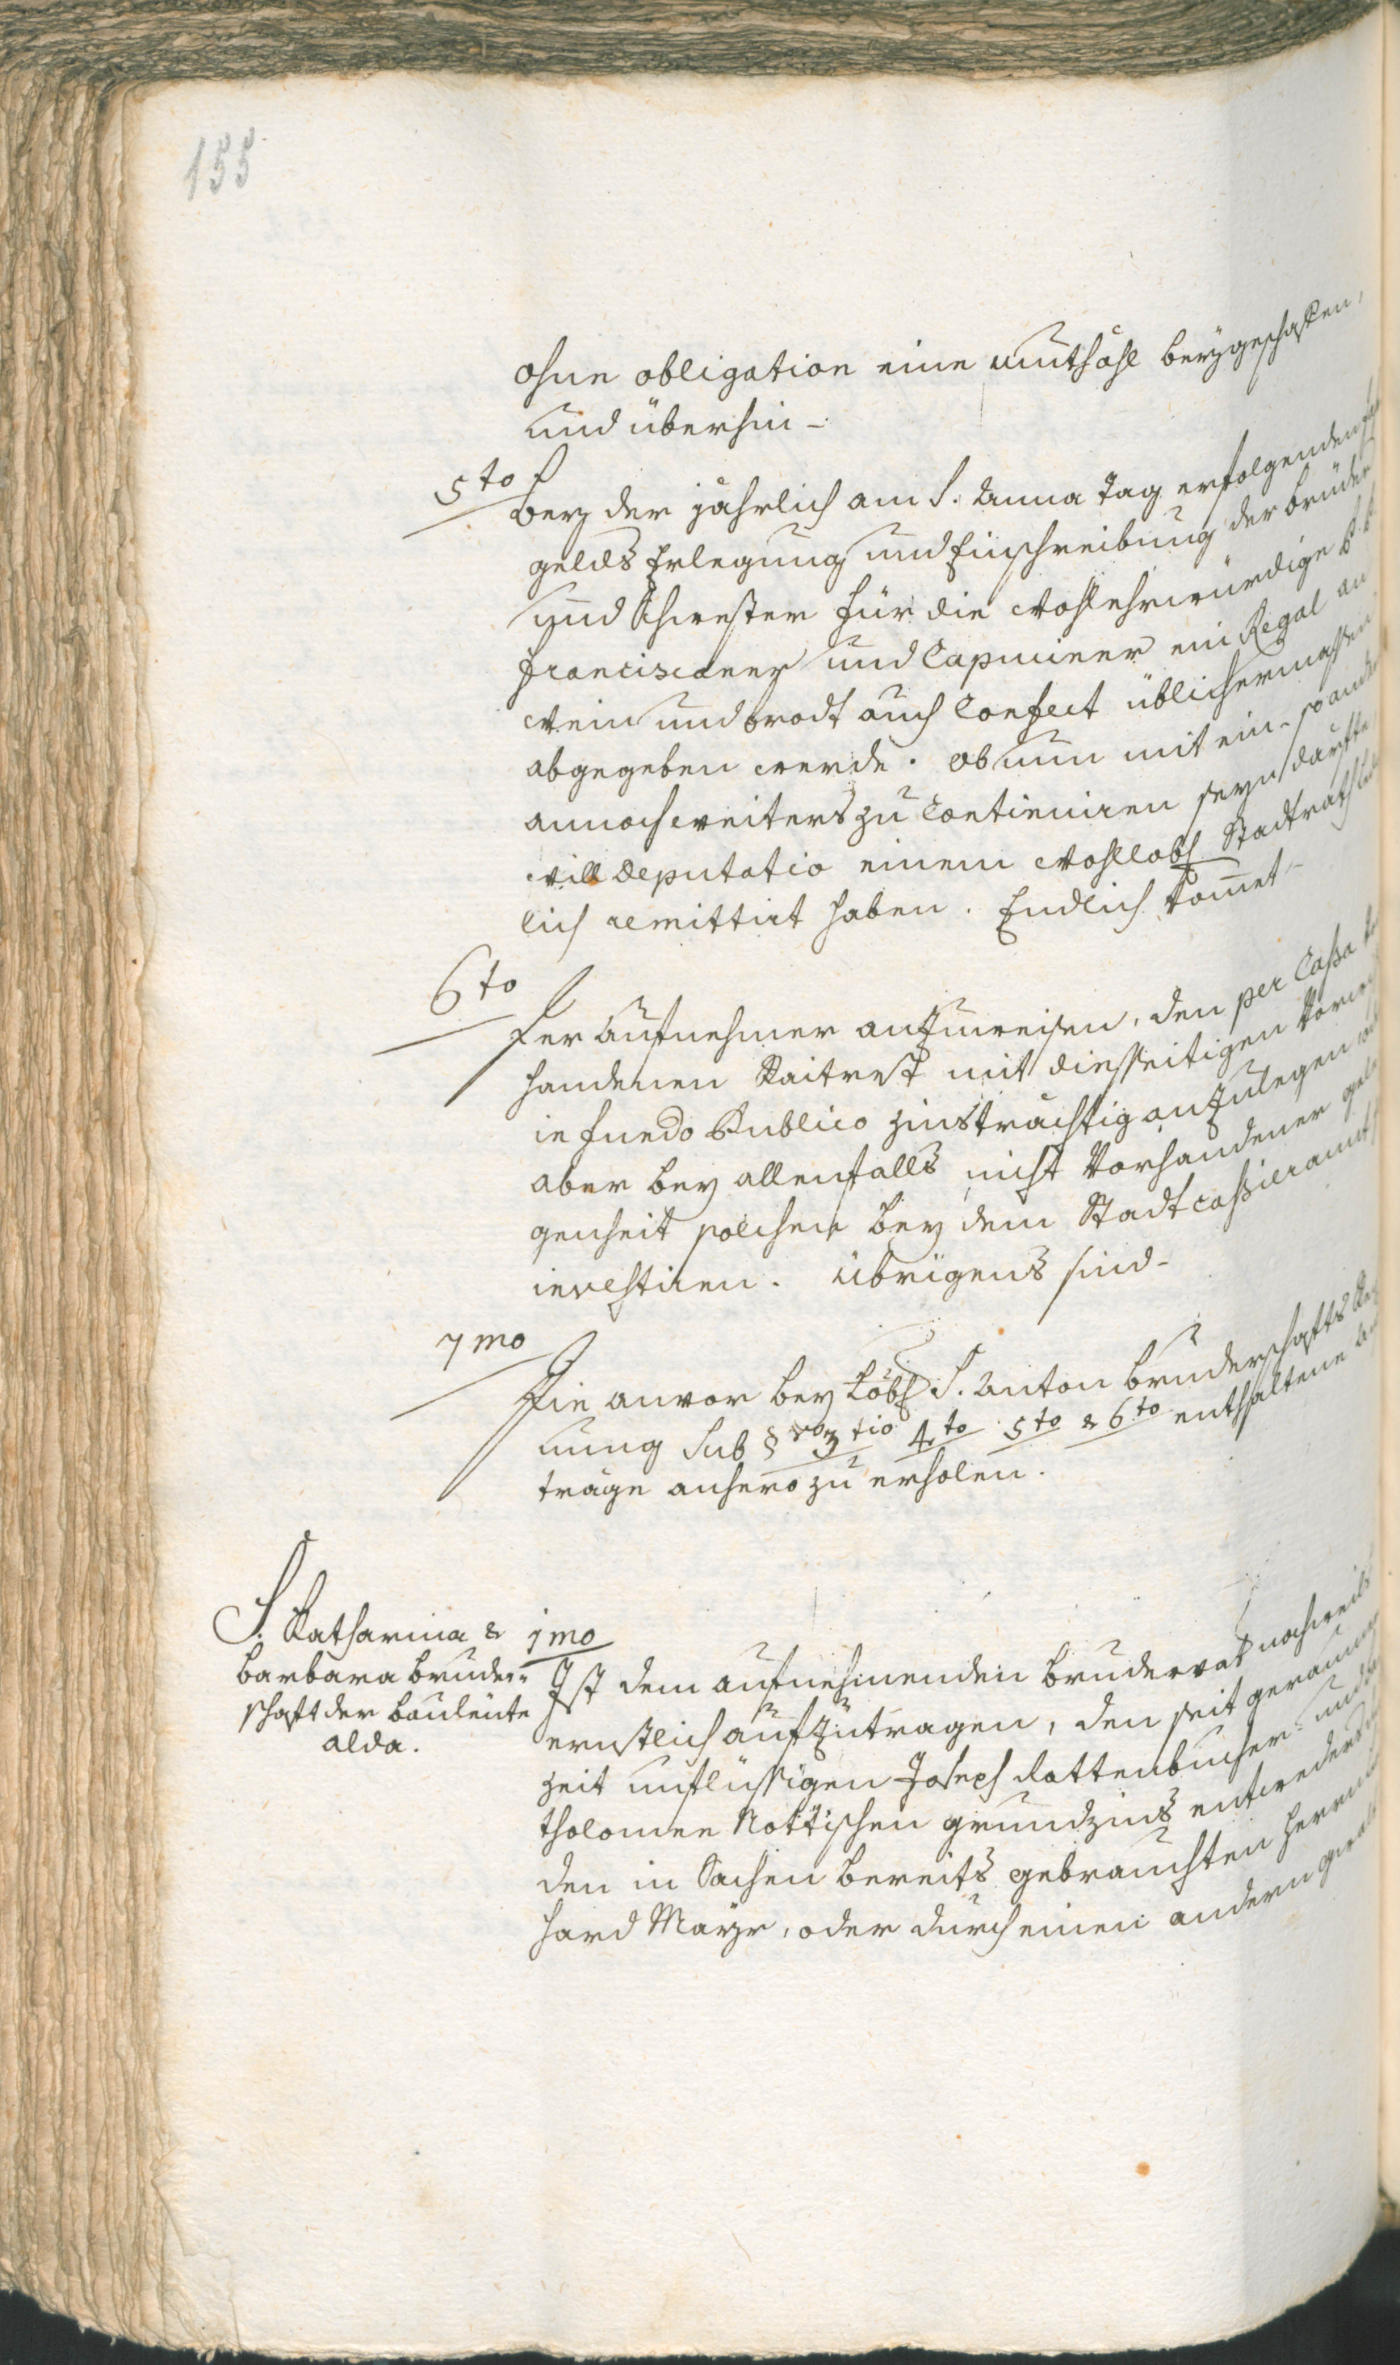 155
ohne obligation eine muthähl beygeschaffen,
und überhin -
5to
bey der jährlich am S: Anna Tag erfolgenden
gelds Erlegung und Einschreibung der brüder
und Schwester für die wohlehrwürdige P: P:
Franciscaner und Capuciner ein Regal an
wein und brodt auch Confect üblichermassen
abgegeben werde. Ob nun mit ein- so andern
annoch weiters zu Continuiren seyn därfte
will Deputatio einem wohllobl Stadtrath
lich remittirt haben. Endlich kommet -
6to
Der Aufnehmer anzuweisen, den per Cassa
handenen Raitrest mit diesseitigen Vorwissen
in fundo Publico zinsträchtig anzulegen
aber bey allenfalls nicht Vorhandener gele
genheit solchen bey dem Stadtcassieramt
investiren. Übrigens sind -
7mo
Die anvor bey Löbl S. Anton bruderschafts
nung Sub §vo 3tio 4to 5to & 6to enthaltene
träge anhero zu erholen.
S. Katharina &
barbara bruder=
schaft der bauleute
alda.
1mo
Ist dem aufnehmenden bruderrat nochweils
ernstlich aufzutragen, den seit geraumer
zeit unflüssigen Joseph Rottenbucher- und
tholomee Nottischen grundzins entweder
den in Sachen bereits gebrauchten Herrn
hard Mayr, oder durch einen andern